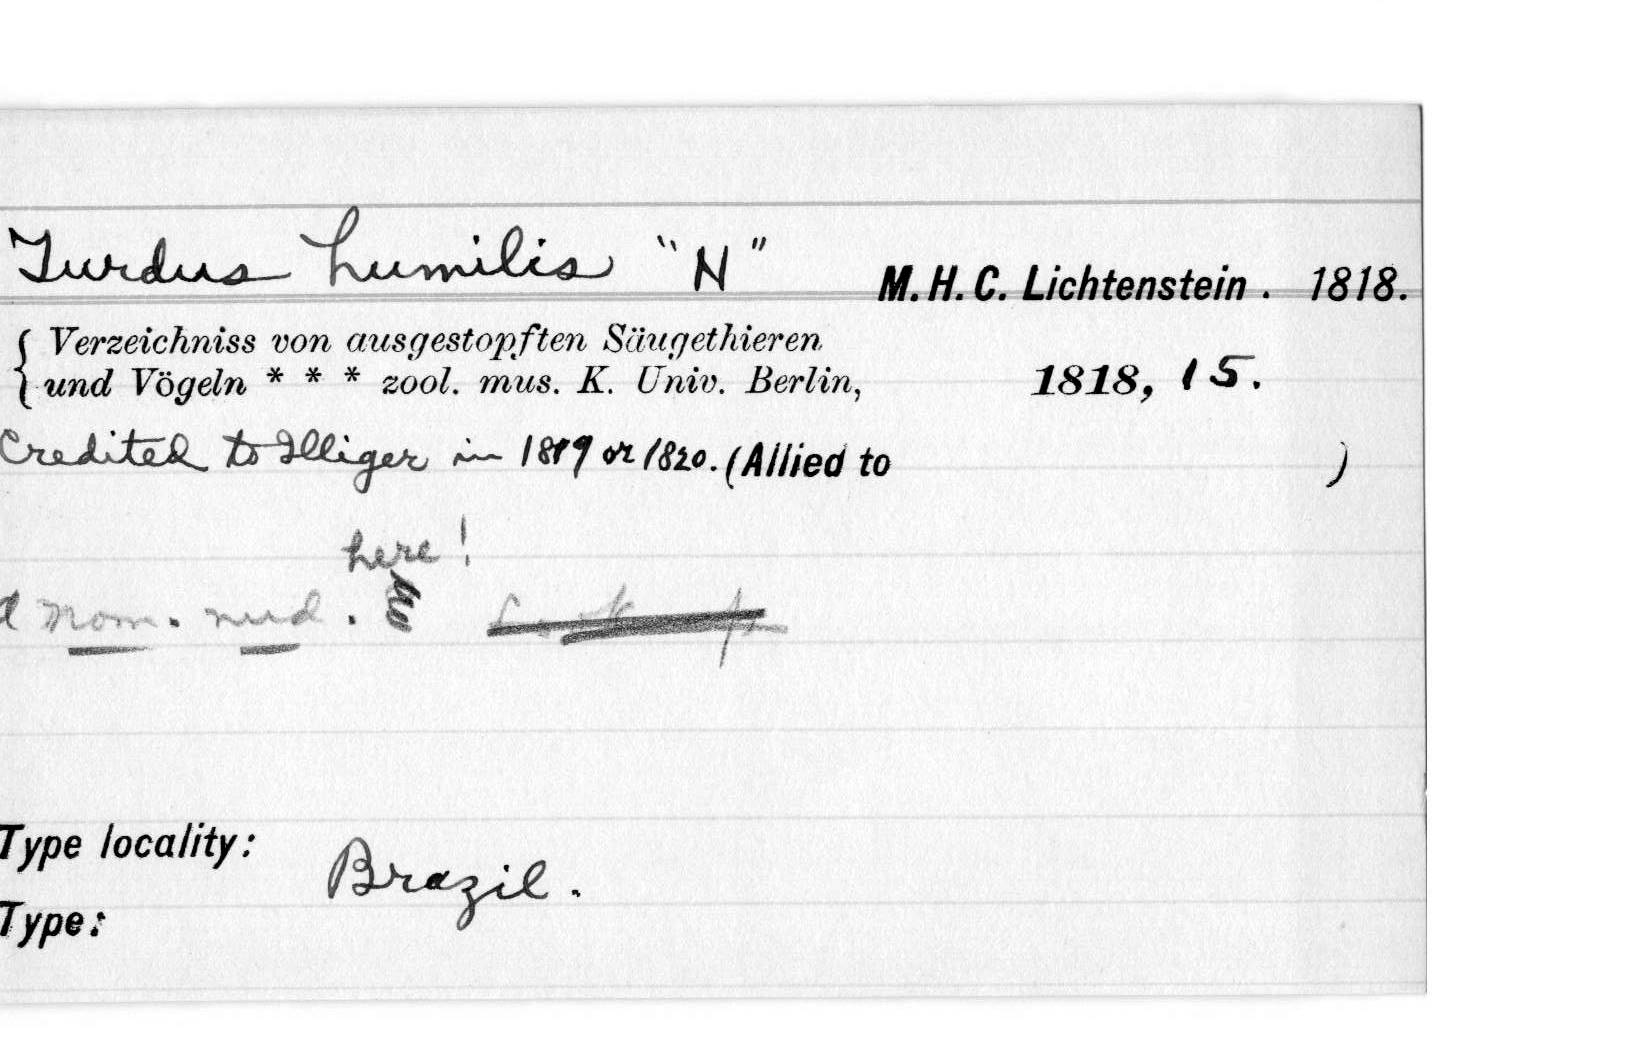 Turdus humilis "N" M. H. C. Lichtenstein. 1818.
{ Verzeichniss von ausgestopften Säugethieren
und Vögeln * * * zool. mus. K. Univ. Berlin, 1818, 15.
Credited to Illiger in 1819 or 1820. (Allied to )
here!
a nom. nud.
Type locality: Brazil.
Type: